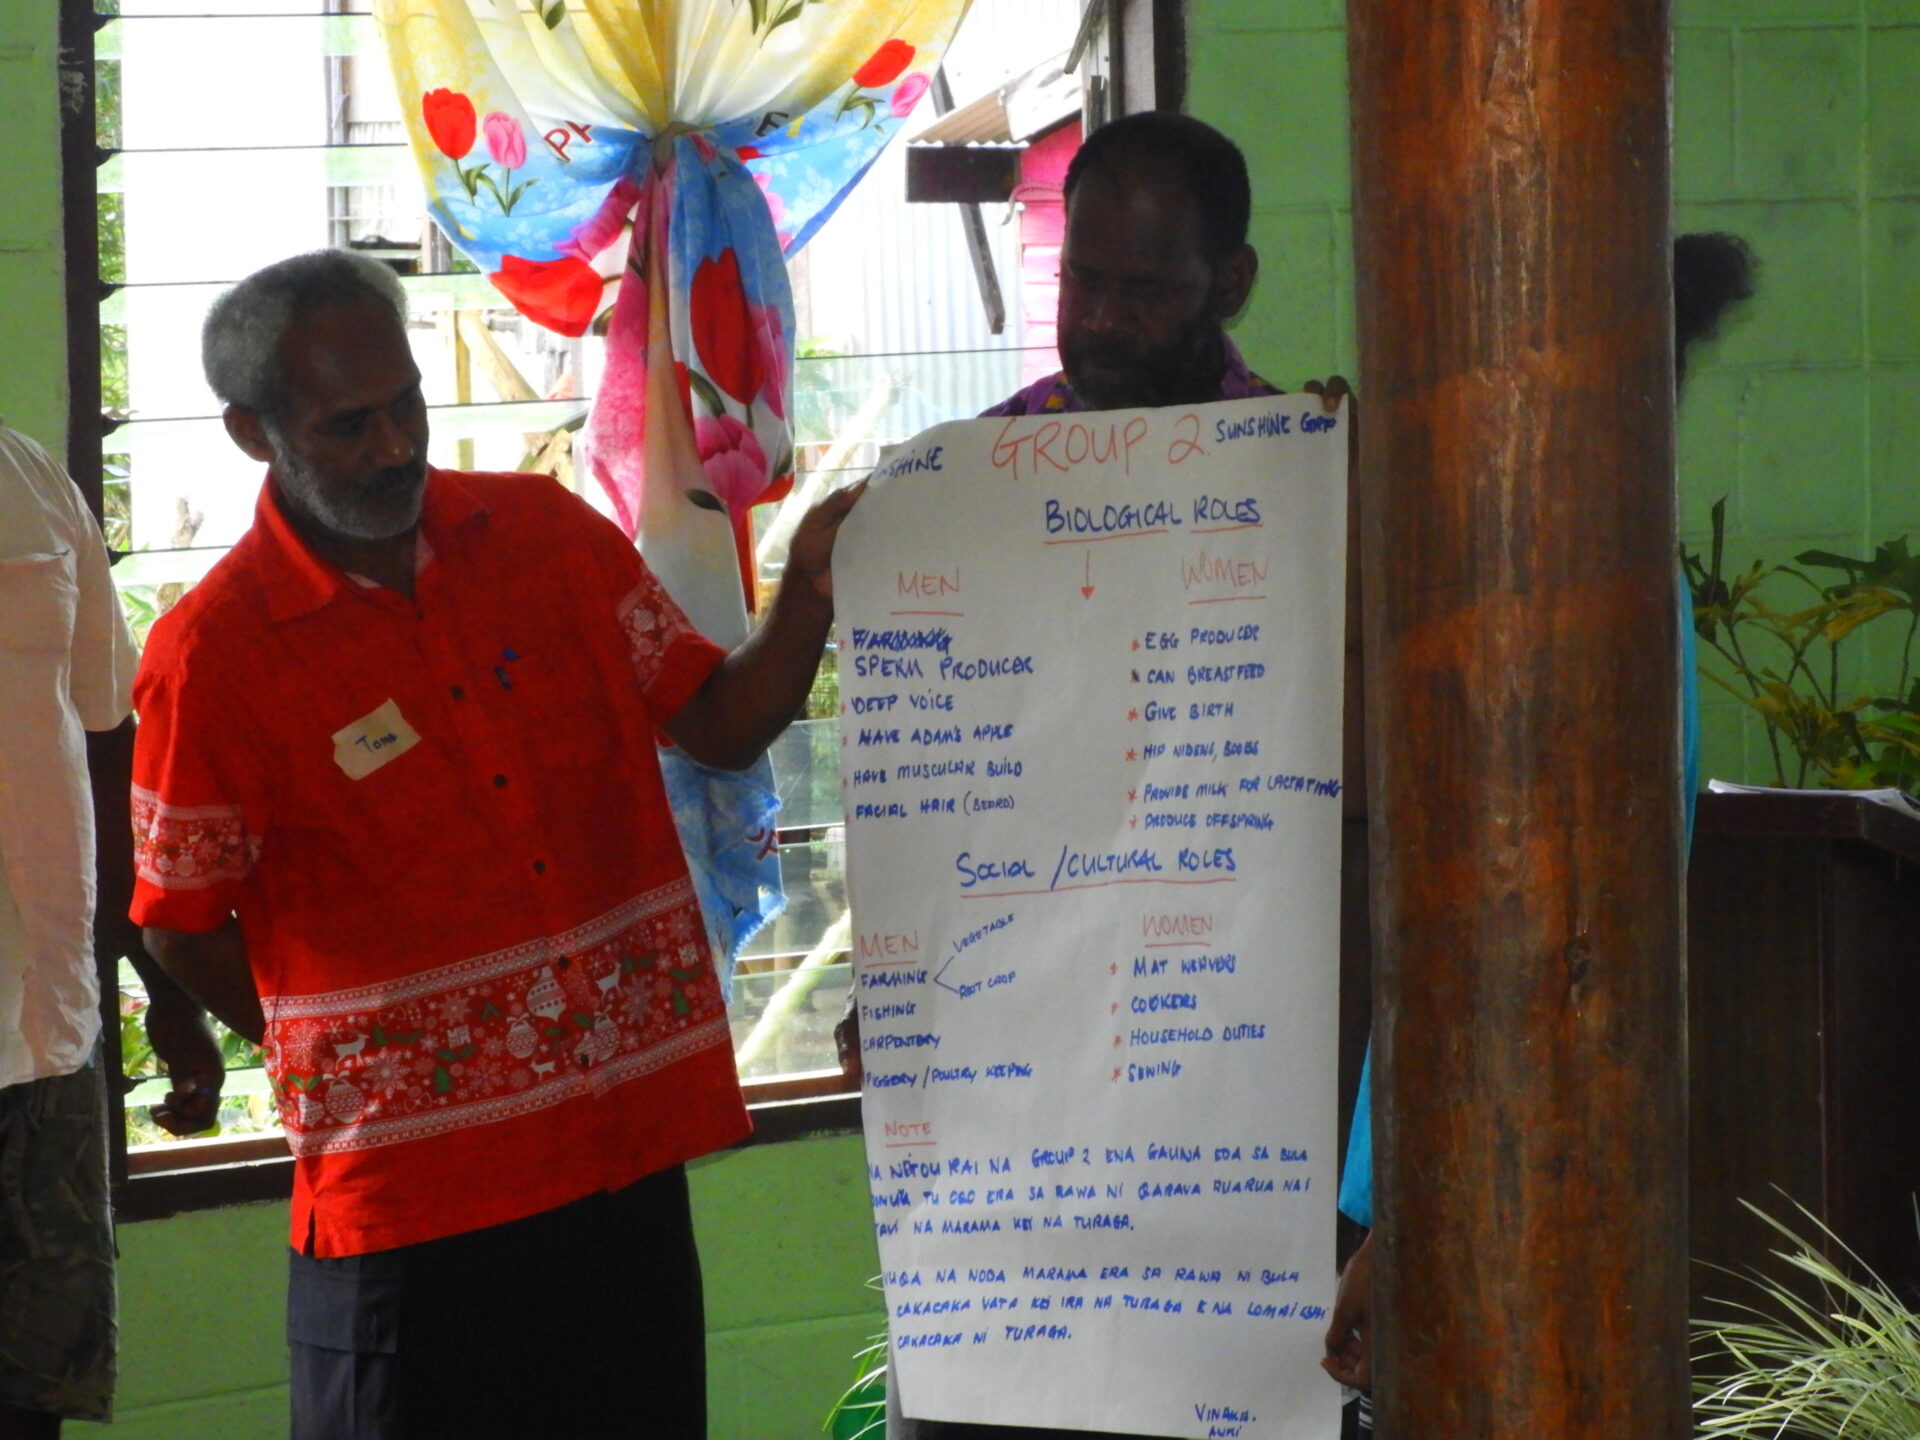 GROUP 2.
SUNSHINE
BIOLOGICAL ROLES
MEN
WOMEN
SPERM PRODUCER
DEEP VOICE
HAVE ADAM'S APPLE
HAVE MUSCULAR BUILD
FACIAL HAIR (BEARD)
EGG PRODUCER
CAN BREASTFEED
GIVE BIRTH
HIP WIDENS, BOOBS
PROVIDE MILK FOR LACTATING
PRODUCE OFFSPRING
SOCIAL / CULTURAL ROLES
MEN
FARMING
VEGETABLE
ROOT CROP
FISHING
CARPENTERY
PIGGERY / POULTRY KEEPING
WOMEN
MAT WEAVERS
COOKERS
HOUSEHOLD DUTIES
SEWING
NOTE
NA NEITOU RAI NA GROUP 2 ENA GAUNA EDA SA BULA
TU OQO ERA SA RAWA NI QARAVA RUARUA NAI
TAVI NA MARAMA KEI NA TURAGA.
VUQA NA NODA MARAMA ERA SA RAWA NI BULA
CAKACAKA VATA KEI IRA NA TURAGA E NA
CAKACAKA NI TURAGA.
VINAKA.